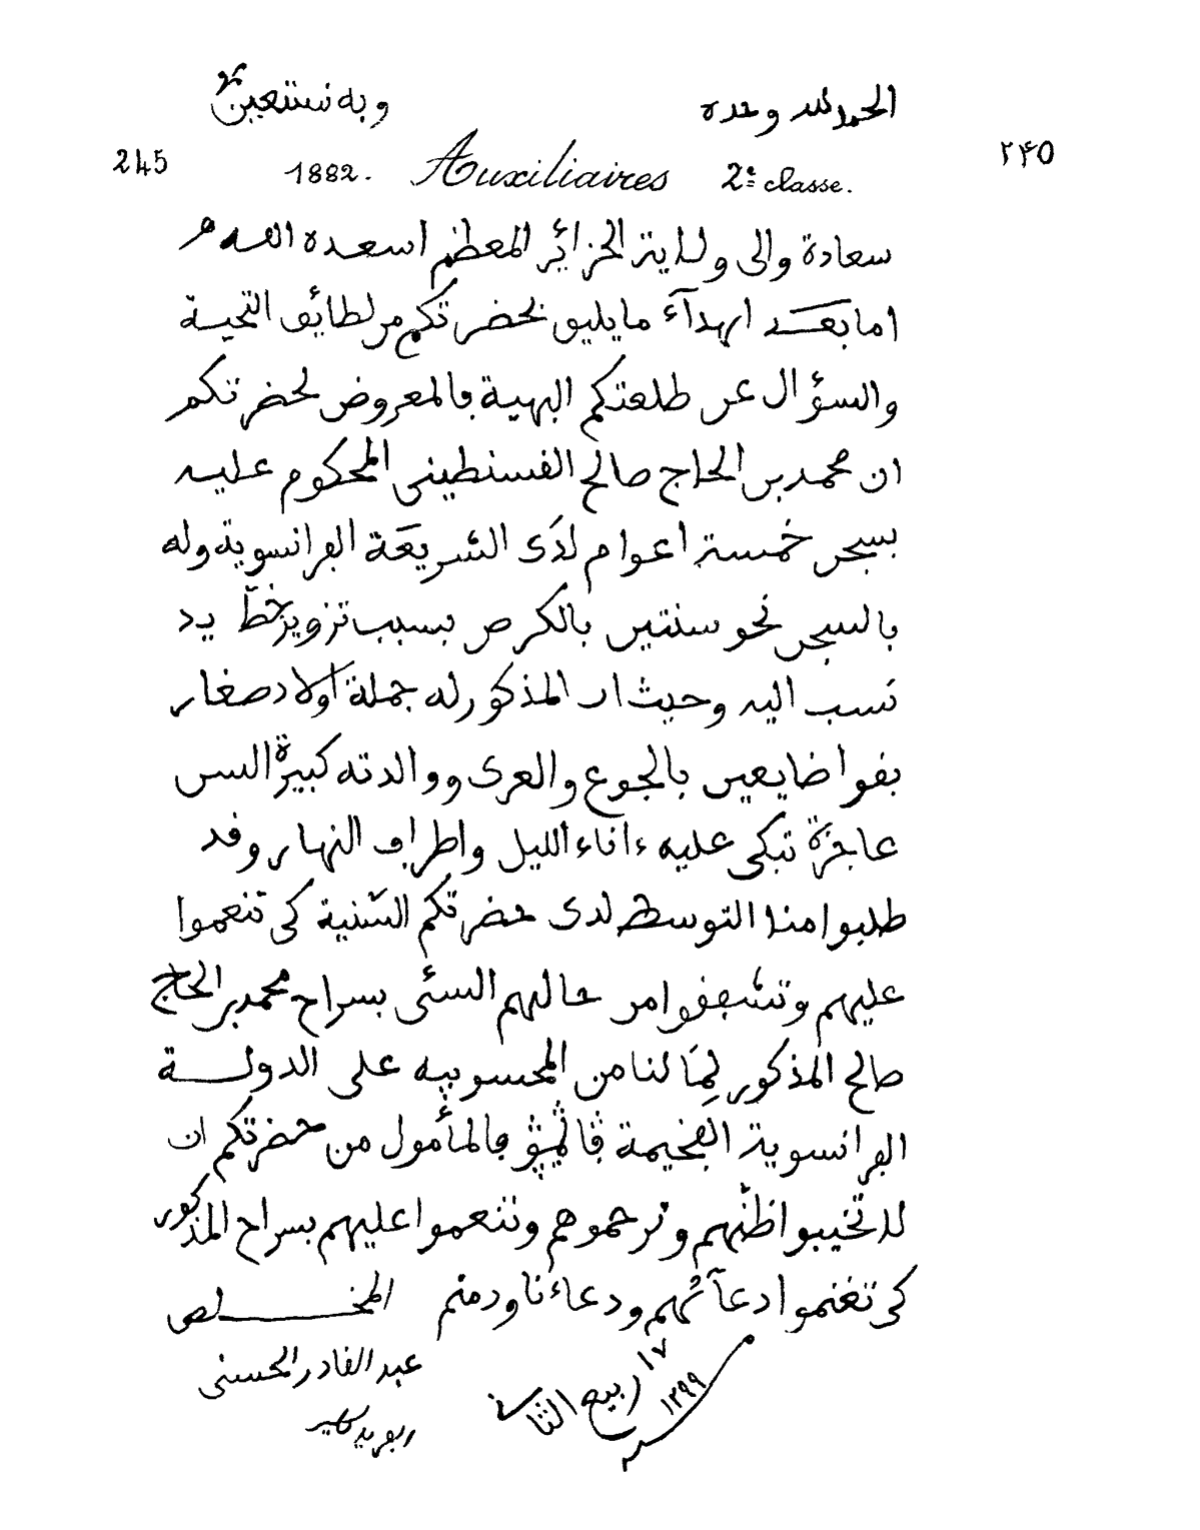 الحمد لله وحده وبه نستعين
245 1882. Auxiliaires 2e classe. ٢٤٥
سعادة والى ولاية الجزائر المعظم اسعده الله
اما بعد اهدآء ما يليق بحضرتكم من لطائف التحية
والسؤال عن طلعتكم البهية فالمعروض لحضرتكم
ان محمد بن الحاج صالح القسنطينى المحكوم عليه
بسجن خمسة اعوام لدَى الشريعَة الفرانسوية وله
بالسجن نحو سنتين بالكرص بسبب تزوير خطّ يد
نسب اليه وحيث ان المذكور له جملة اولاد صغار
بقوا ضايعين بالجوع والعرى ووالدته كبيرة السن
عاجزة تبكى عليه ءاناء الليل واطراف النهار وقد
طلبوا منا التوسط لدى حضرتكم السّنية كى تنعموا
عليهم وتشفقوا من حالهم السئى بسراح محمد بن الحاج
صالح المذكور لِمَا لنا من المحسوبيه على الدولة
الفرانسوية الفخيمة فالمأمول من حضرتكم ان
لا تخيبوا ظنّهم وترحموهم وتنعموا عليهم بسراح المذكور
كى تغنموا دعآئهم ودعاءنا ودمتم المخلص
عبد القادر الحسنى
١٧ ربيع الثانى
١٢٩٩